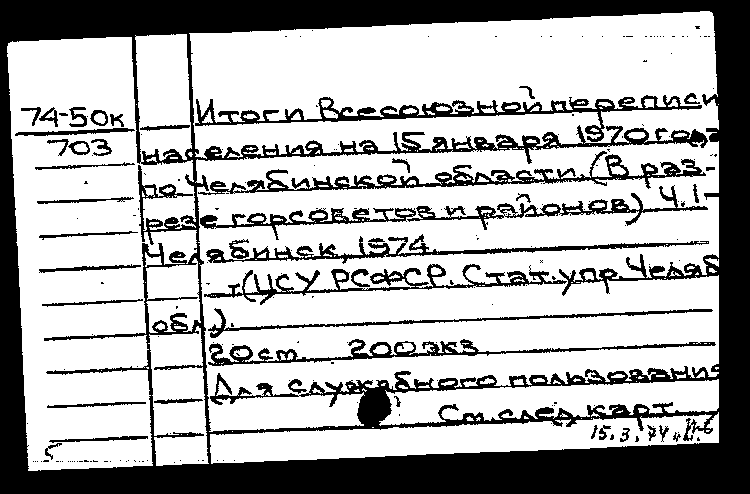 74-50к
703
Итоги Всесоюзной переписи
населения на 15 января 1970 года
по Челябинской области. (В раз-
резе горсоветов и районов) Ч. 1-
Челябинск, 1974.
т. (ЦСУ РСФСР. Стат. упр. Челяб
обл.).
20 см. 200 экз.
Для служебного пользования
См. след. карт.
15.3.74
5